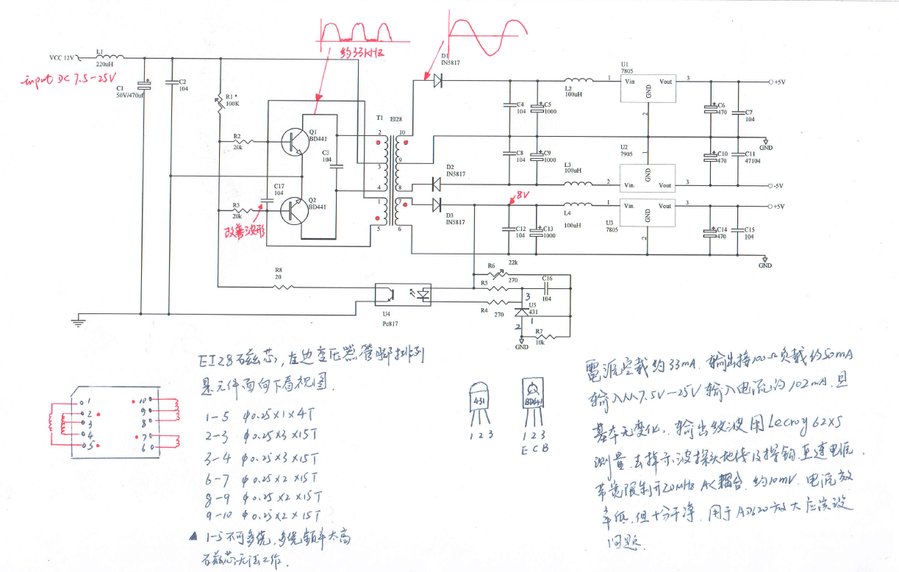 约33KHz
VCC 12V
L1
220uH
input DC 7.5-25V
C1
50V/470uf
C2
104
R1*
100K
R2
20k
Q1
BD441
C3
104
T1
EI28
C17
104
Q2
BD441
R3
20k
改善波形
2
3
4
1
5
10
9
8
7
6
D1
IN5817
D2
IN5817
D3
IN5817
8V
C4
104
C5
1000
C8
104
C9
1000
C12
104
C13
1000
L2
100uH
L3
100uH
L4
100uH
U1
7805
1
Vin
Vout
3
GND
2
U2
7905
1
Vin
Vout
3
GND
2
U3
7805
1
Vin
Vout
3
GND
2
C6
470
C7
104
C10
470
C11
47104
C14
470
C15
104
+5V
GND
-5V
+5V
GND
R8
20
U4
Pc817
R6
22k
R5
270
R4
270
C16
104
3
U5
431
1
2
R7
10k
GND
EI28磁芯,左边变压器管脚排列
是元件面向下看视图.
1-5 φ0.25×1×4T
2-3 φ0.25×3×15T
3-4 φ0.25×3×15T
6-7 φ0.25×2×15T
8-9 φ0.25×2×15T
9-10 φ0.25×2×15T
▲ 1-5不可多绕,多绕频率太高
磁芯无法工作.
1
2
3
4
5
10
9
8
7
6
431
1 2 3
BD441
1 2 3
E C B
电源空载约33mA.输出接100Ω负载约50mA
输入从7.5V-25V输入电流约102mA,且
基本无变化.输出纹波用Lecroy 62xs
测量,去掉示波探头地线及探钩,直连电低.
带宽限制开20MHz AC耦合.约10mV.电流效
率低,但十分干净.用于AD620放大应该没
问题.